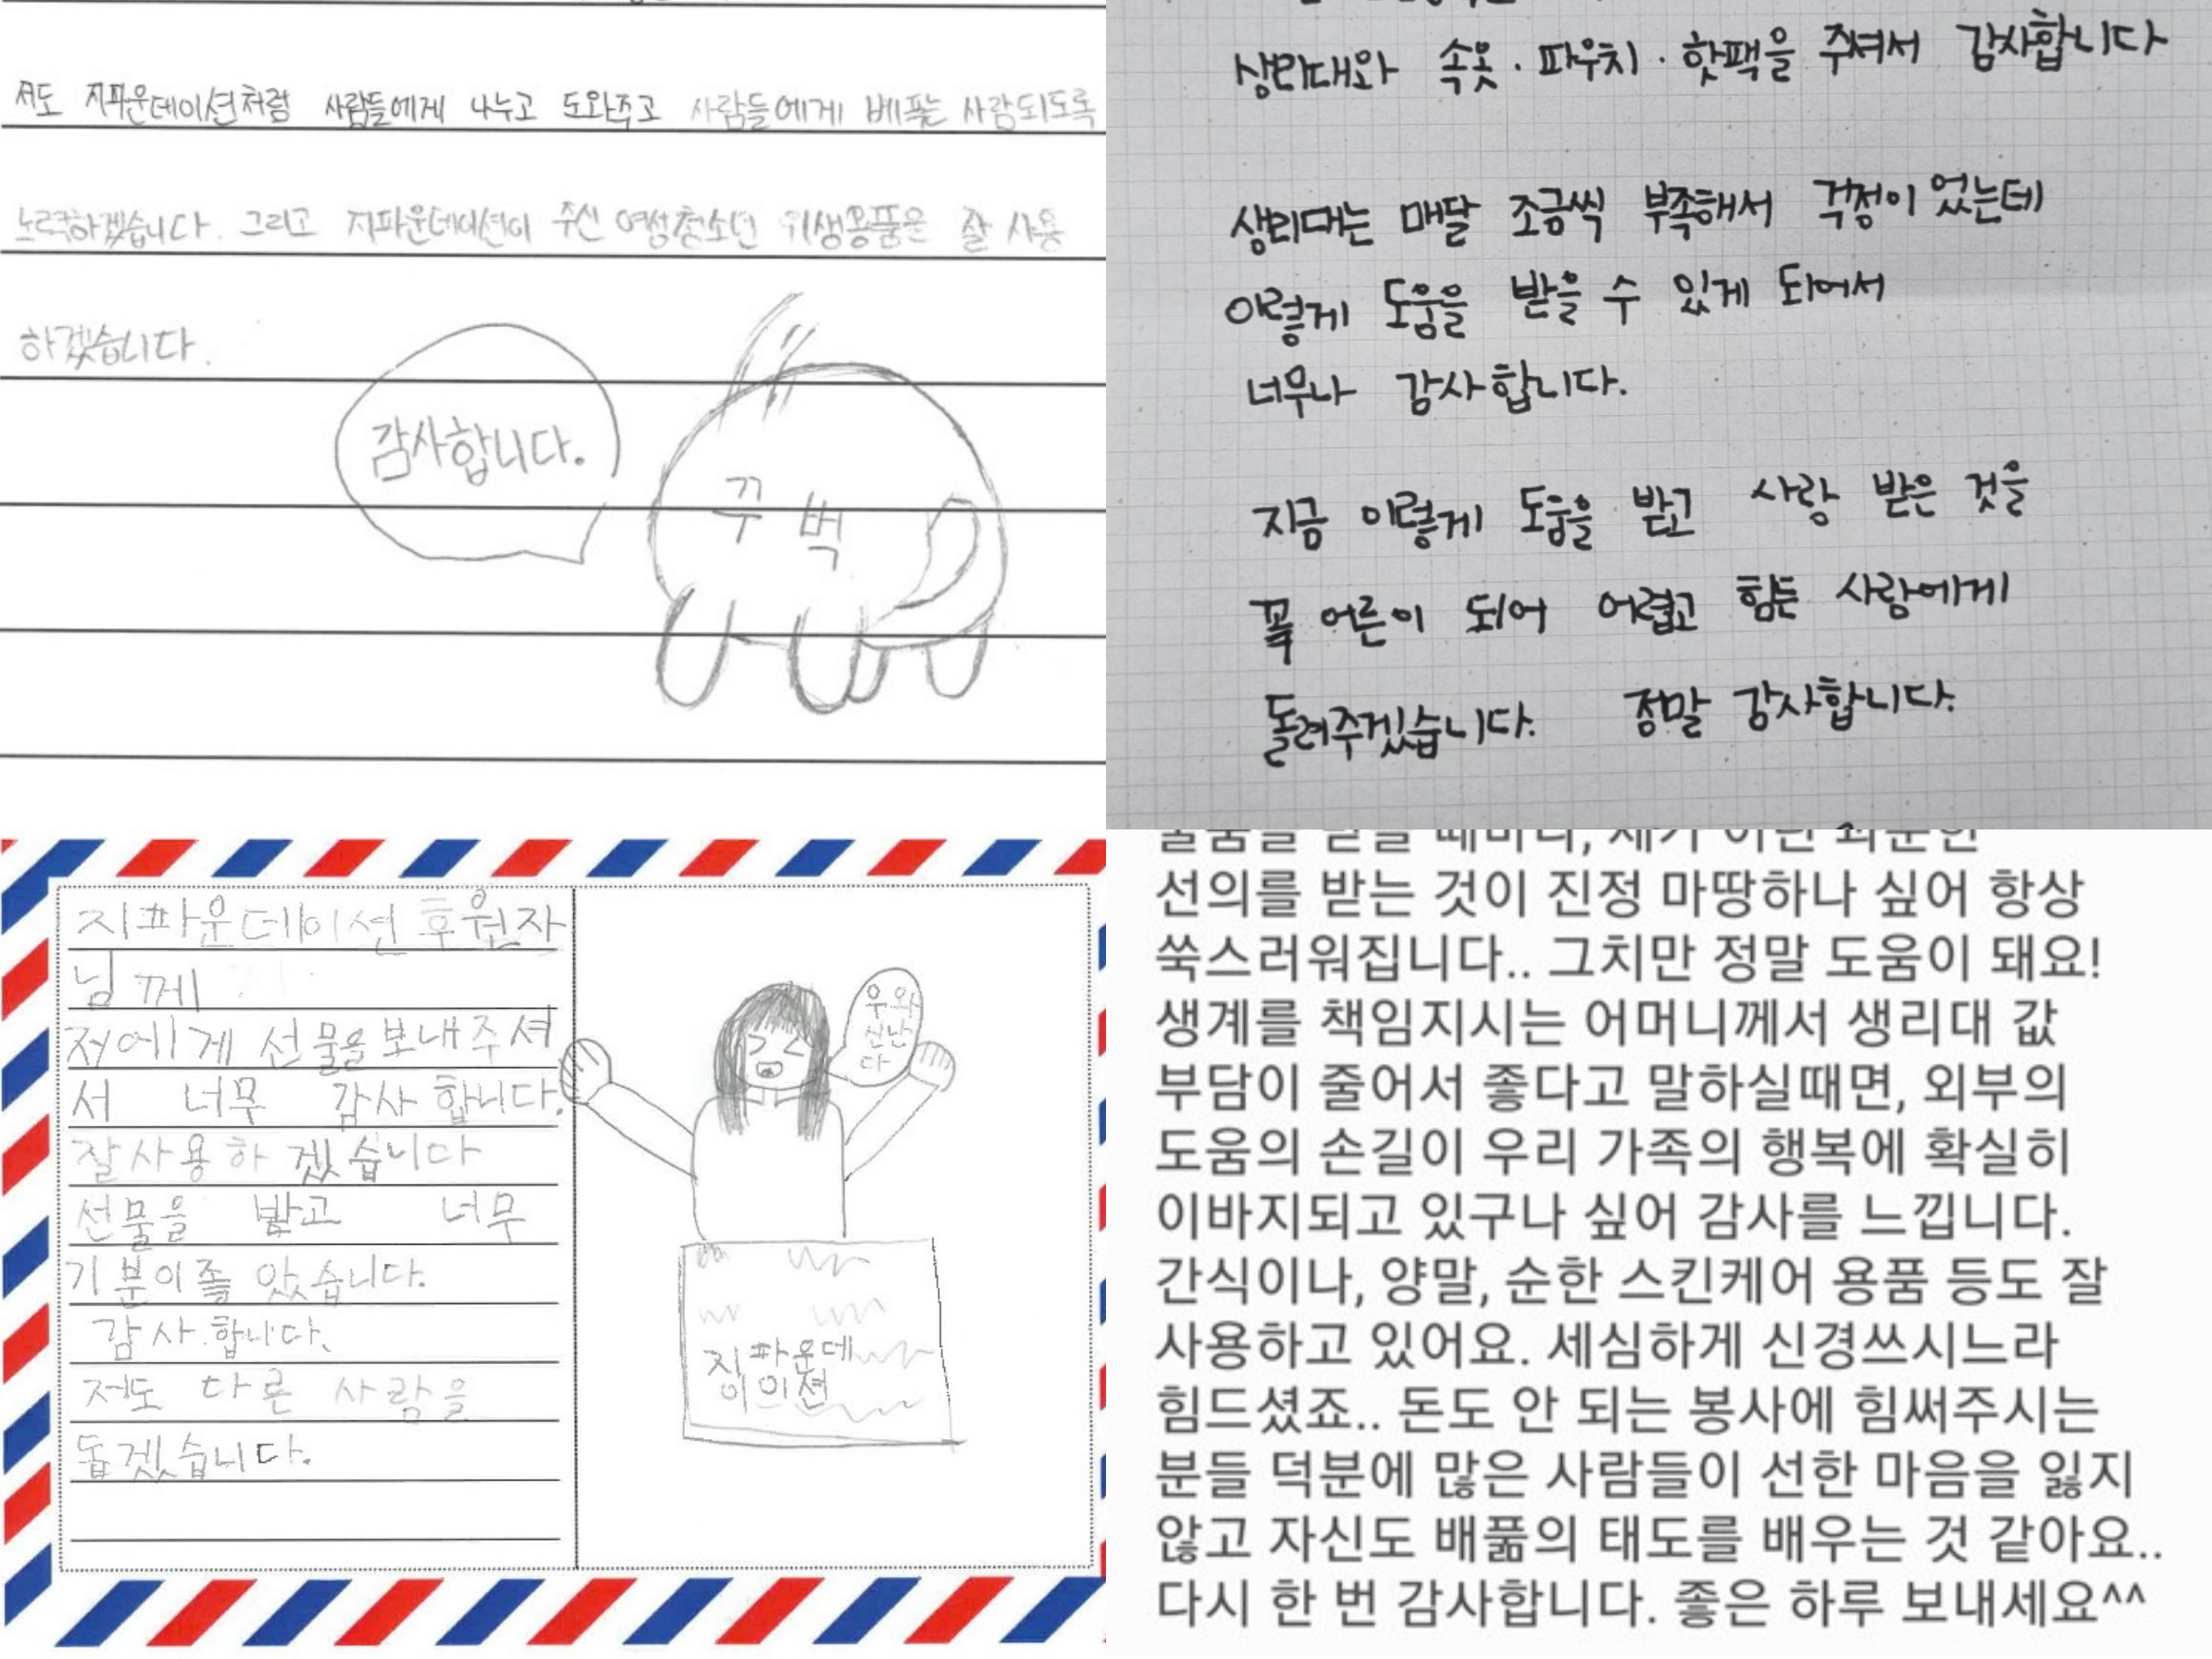 저도 지파운데이션처럼 사람들에게 나누고 도와주고 사람들에게 베푸는 사람되도록
노력하겠습니다. 그리고 지파운데이션이 주신 여성청소년 위생용품은 잘 사용
하겠습니다.
감사합니다.
꾸벅
생리대와 속옷·파우치·핫팩을 주셔서 감사합니다
생리대는 매달 조금씩 부족해서 걱정이었는데
이렇게 도움을 받을 수 있게 되어서
너무나 감사합니다.
지금 이렇게 도움을 받고 사랑 받은 것을
꼭 어른이 되어 어렵고 힘든 사람에게
돌려주겠습니다. 정말 감사합니다.
지파운데이션 후원자
님께
저에게 선물을 보내주셔
서 너무 감사합니다.
잘사용하겠습니다
선물을 받고 너무
기분이좋았습니다.
감사합니다.
저도 다른 사람을
돕겠습니다.
우와
신난
다
지파운데
이션
물품을 받을 때마다, 제가 이런 과분한
선의를 받는 것이 진정 마땅하나 싶어 항상
쑥스러워집니다.. 그치만 정말 도움이 돼요!
생계를 책임지시는 어머니께서 생리대 값
부담이 줄어서 좋다고 말하실때면, 외부의
도움의 손길이 우리 가족의 행복에 확실히
이바지되고 있구나 싶어 감사를 느낍니다.
간식이나, 양말, 순한 스킨케어 용품 등도 잘
사용하고 있어요. 세심하게 신경쓰시느라
힘드셨죠.. 돈도 안 되는 봉사에 힘써주시는
분들 덕분에 많은 사람들이 선한 마음을 잃지
않고 자신도 배풂의 태도를 배우는 것 같아요..
다시 한 번 감사합니다. 좋은 하루 보내세요^^